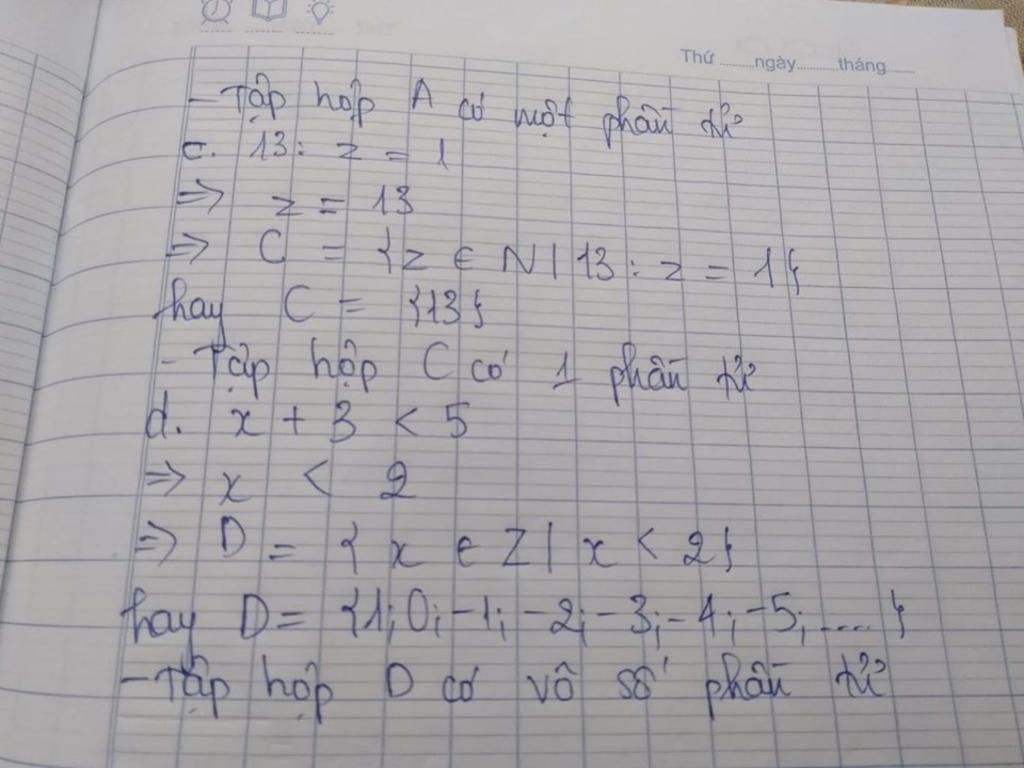 Thứ ........ngày........tháng........
- Tập hợp A có một phần tử
c. 13 : z = 1
=> z = 13
=> C = {z ∈ N | 13 : z = 1}
hay C = {13}
- Tập hợp C có 1 phần tử
d. x + 3 < 5
=> x < 2
=> D = { x ∈ Z | x < 2}
hay D = {1; 0; -1; -2; -3; -4; -5; .... }
- Tập hợp D có vô số phần tử